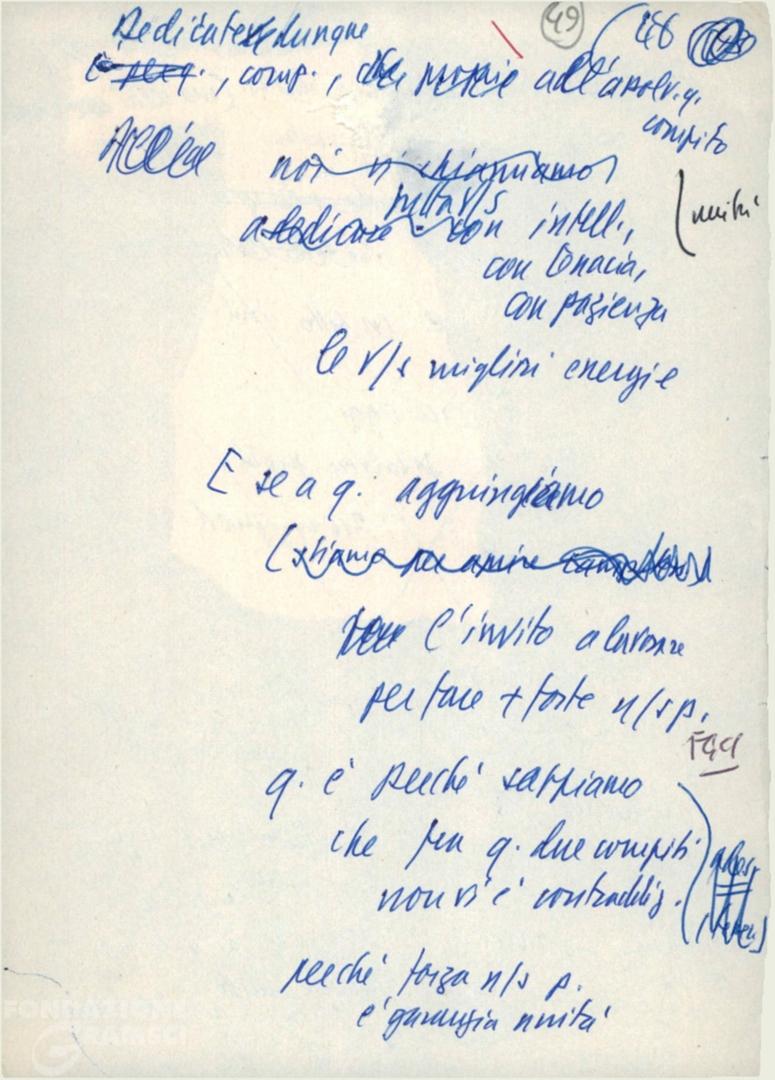 49 48
Dedicate dunque
, comp., all'assolv. q.
compito
noi vi chiamiamo
a dedicare con intell.,
unità
con tenacia,
con pazienza
le v/s migliori energie
E se a q. aggiungiamo
(stiamo per aprire
l'invito a lavorare
per fare + forte n/s p.
FGCI
q. è perché sappiamo
che fra q. due compiti
non vi è contraddiz.
perché forza n/s p.
è garanzia unità
FONDAZIONE
GRAMSCI